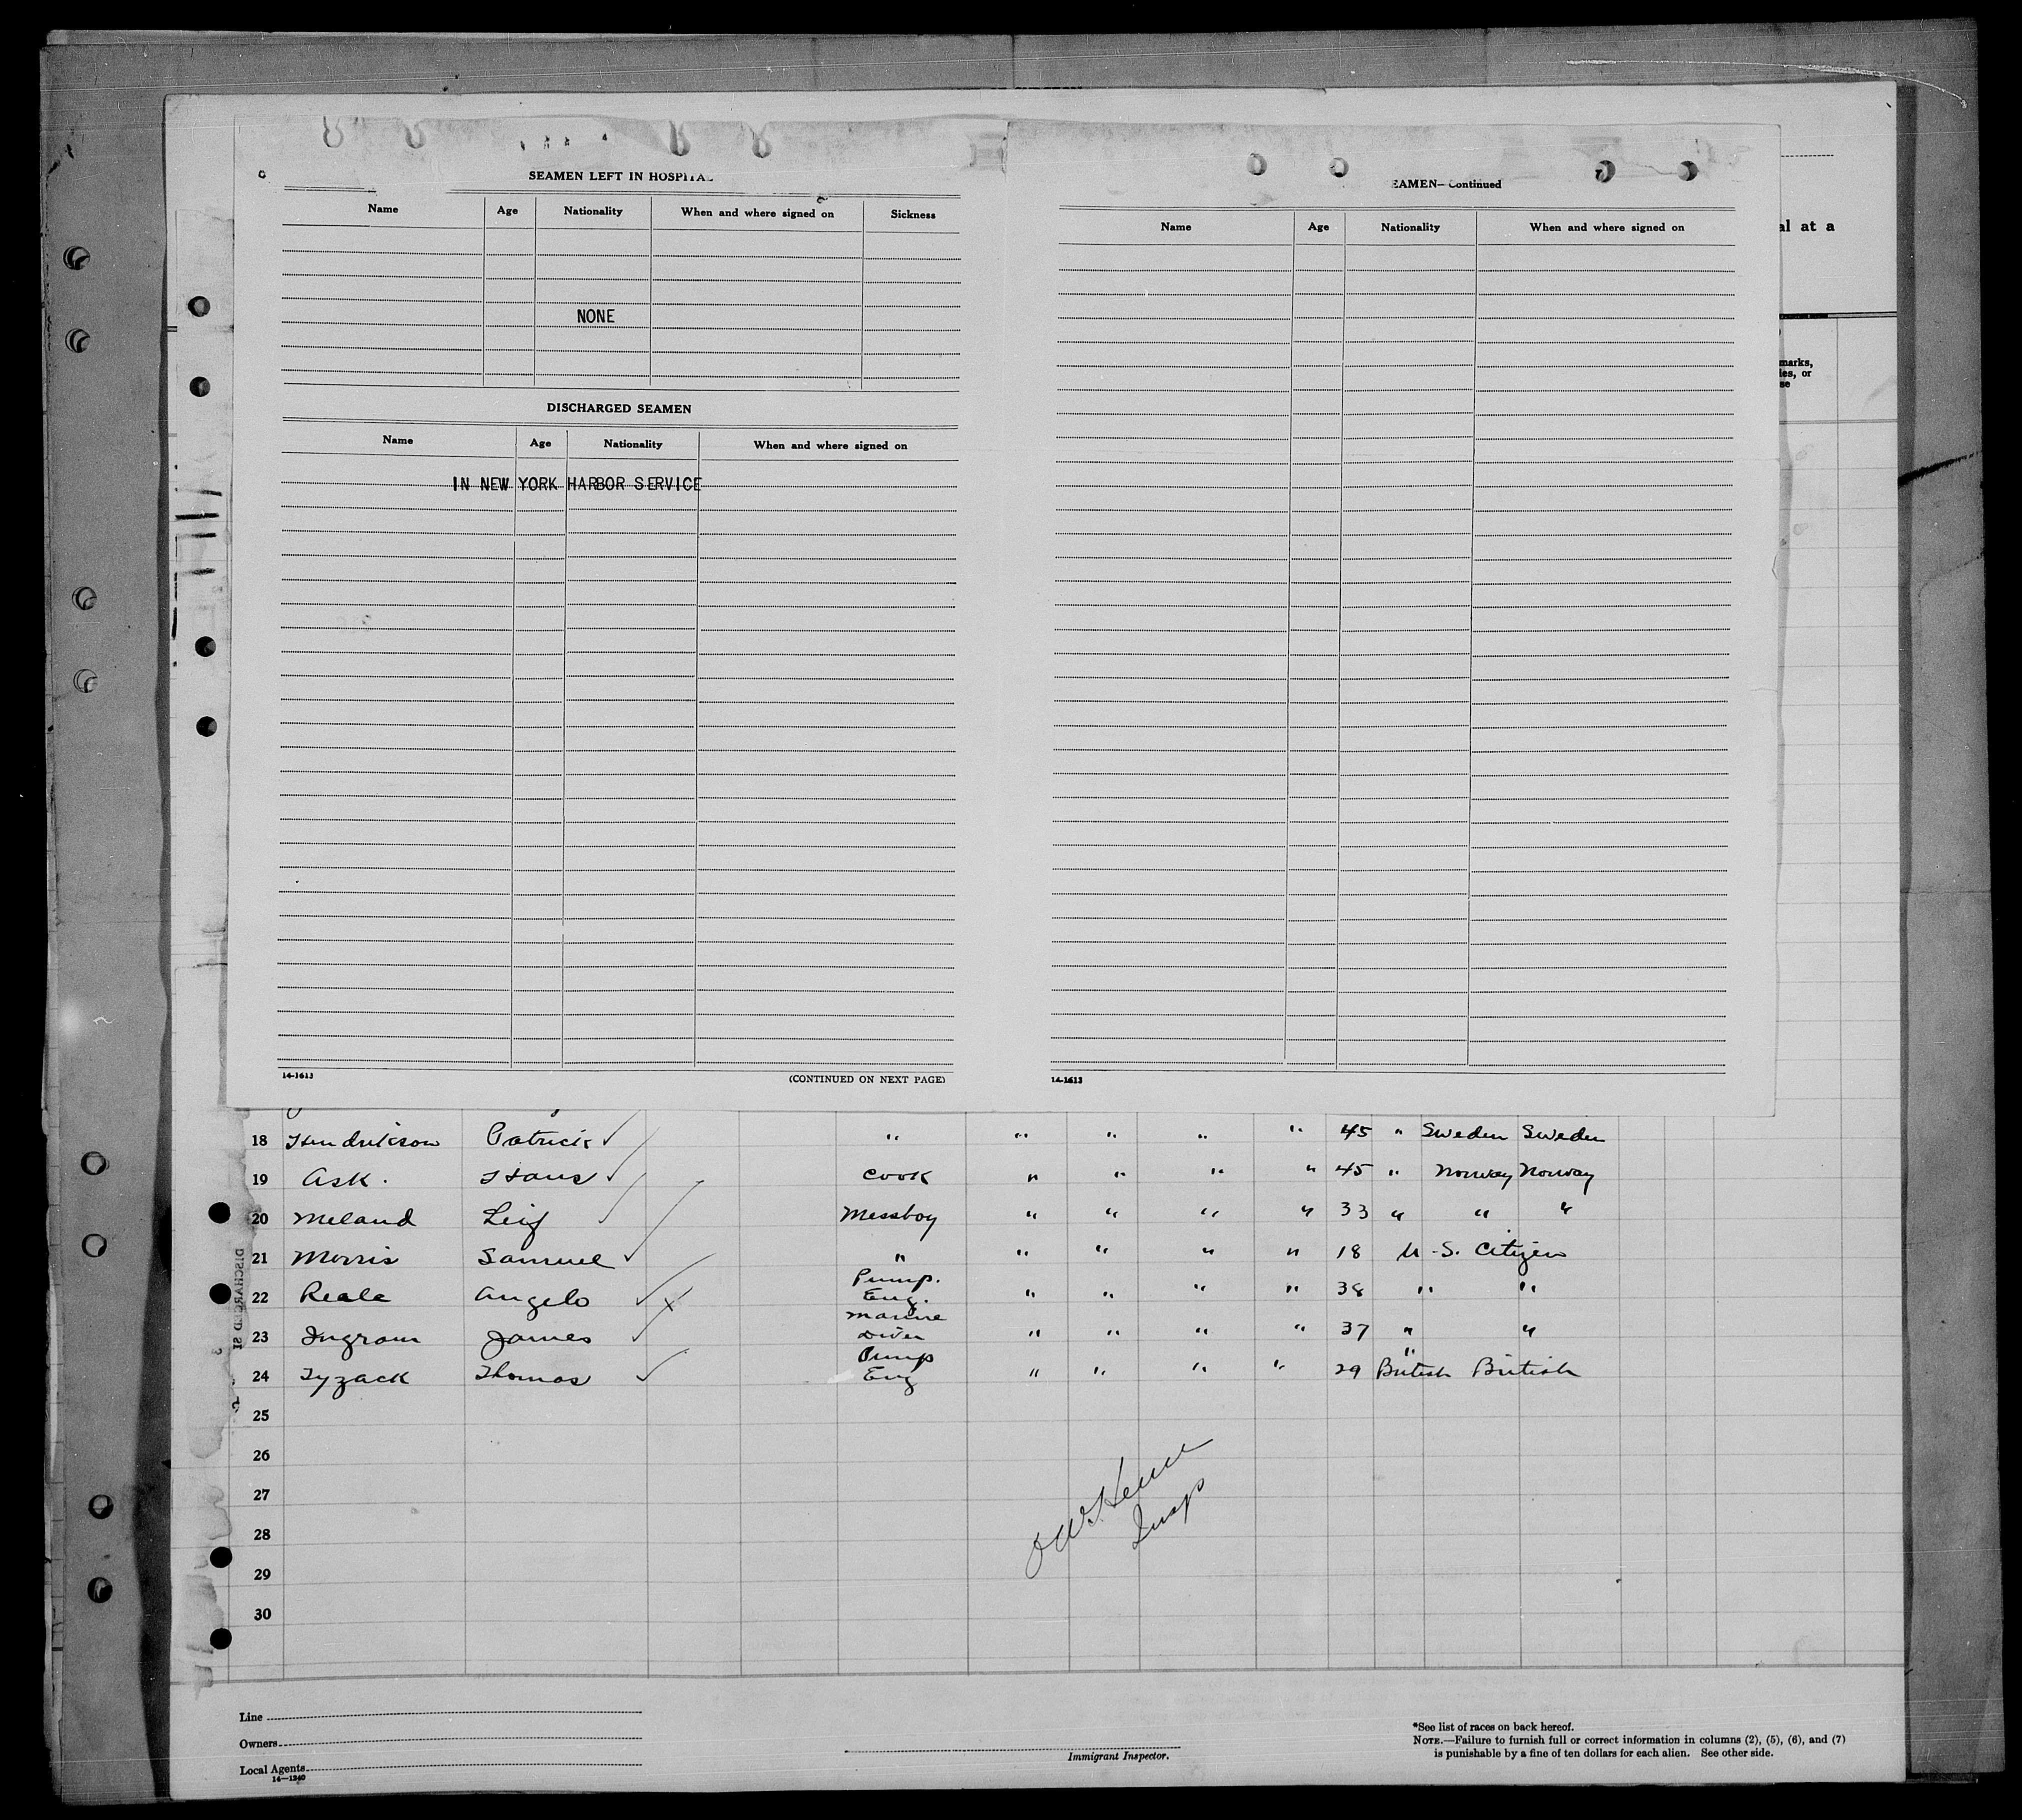 SEAMEN LEFT IN HOSPITAL
Name Age Nationality When and where signed on Sickness
NONE
DISCHARGED SEAMEN
Name Age Nationality When and where signed on
IN NEW YORK HARBOR SERVICE
14-1613 (CONTINUED ON NEXT PAGE)
EAMEN—Continued
Name Age Nationality When and where signed on
14-1613
al at a
marks,
ies, or
se
18 Hendrikson Patrick " " " " " 45 " Sweden Sweden
19 Ask. Hans Cook " " " " 45 " Norway Norway
20 Meland Leif Messboy " " " " 33 " " "
21 Morris Samuel " " " " " 18 U.S. Citizen
22 Reale Angelo Pump. Eng. " " " " 38 " "
23 Ingram James Marine Diver " " " " 37 " "
24 Tyzack Thomas Pump Eng " " " " 29 " British British
25
26
27
28
29
30
Insp
DISCHARGED
Line
Owners
Local Agents
14—1240
Immigrant Inspector.
*See list of races on back hereof.
NOTE.—Failure to furnish full or correct information in columns (2), (5), (6), and (7)
is punishable by a fine of ten dollars for each alien. See other side.